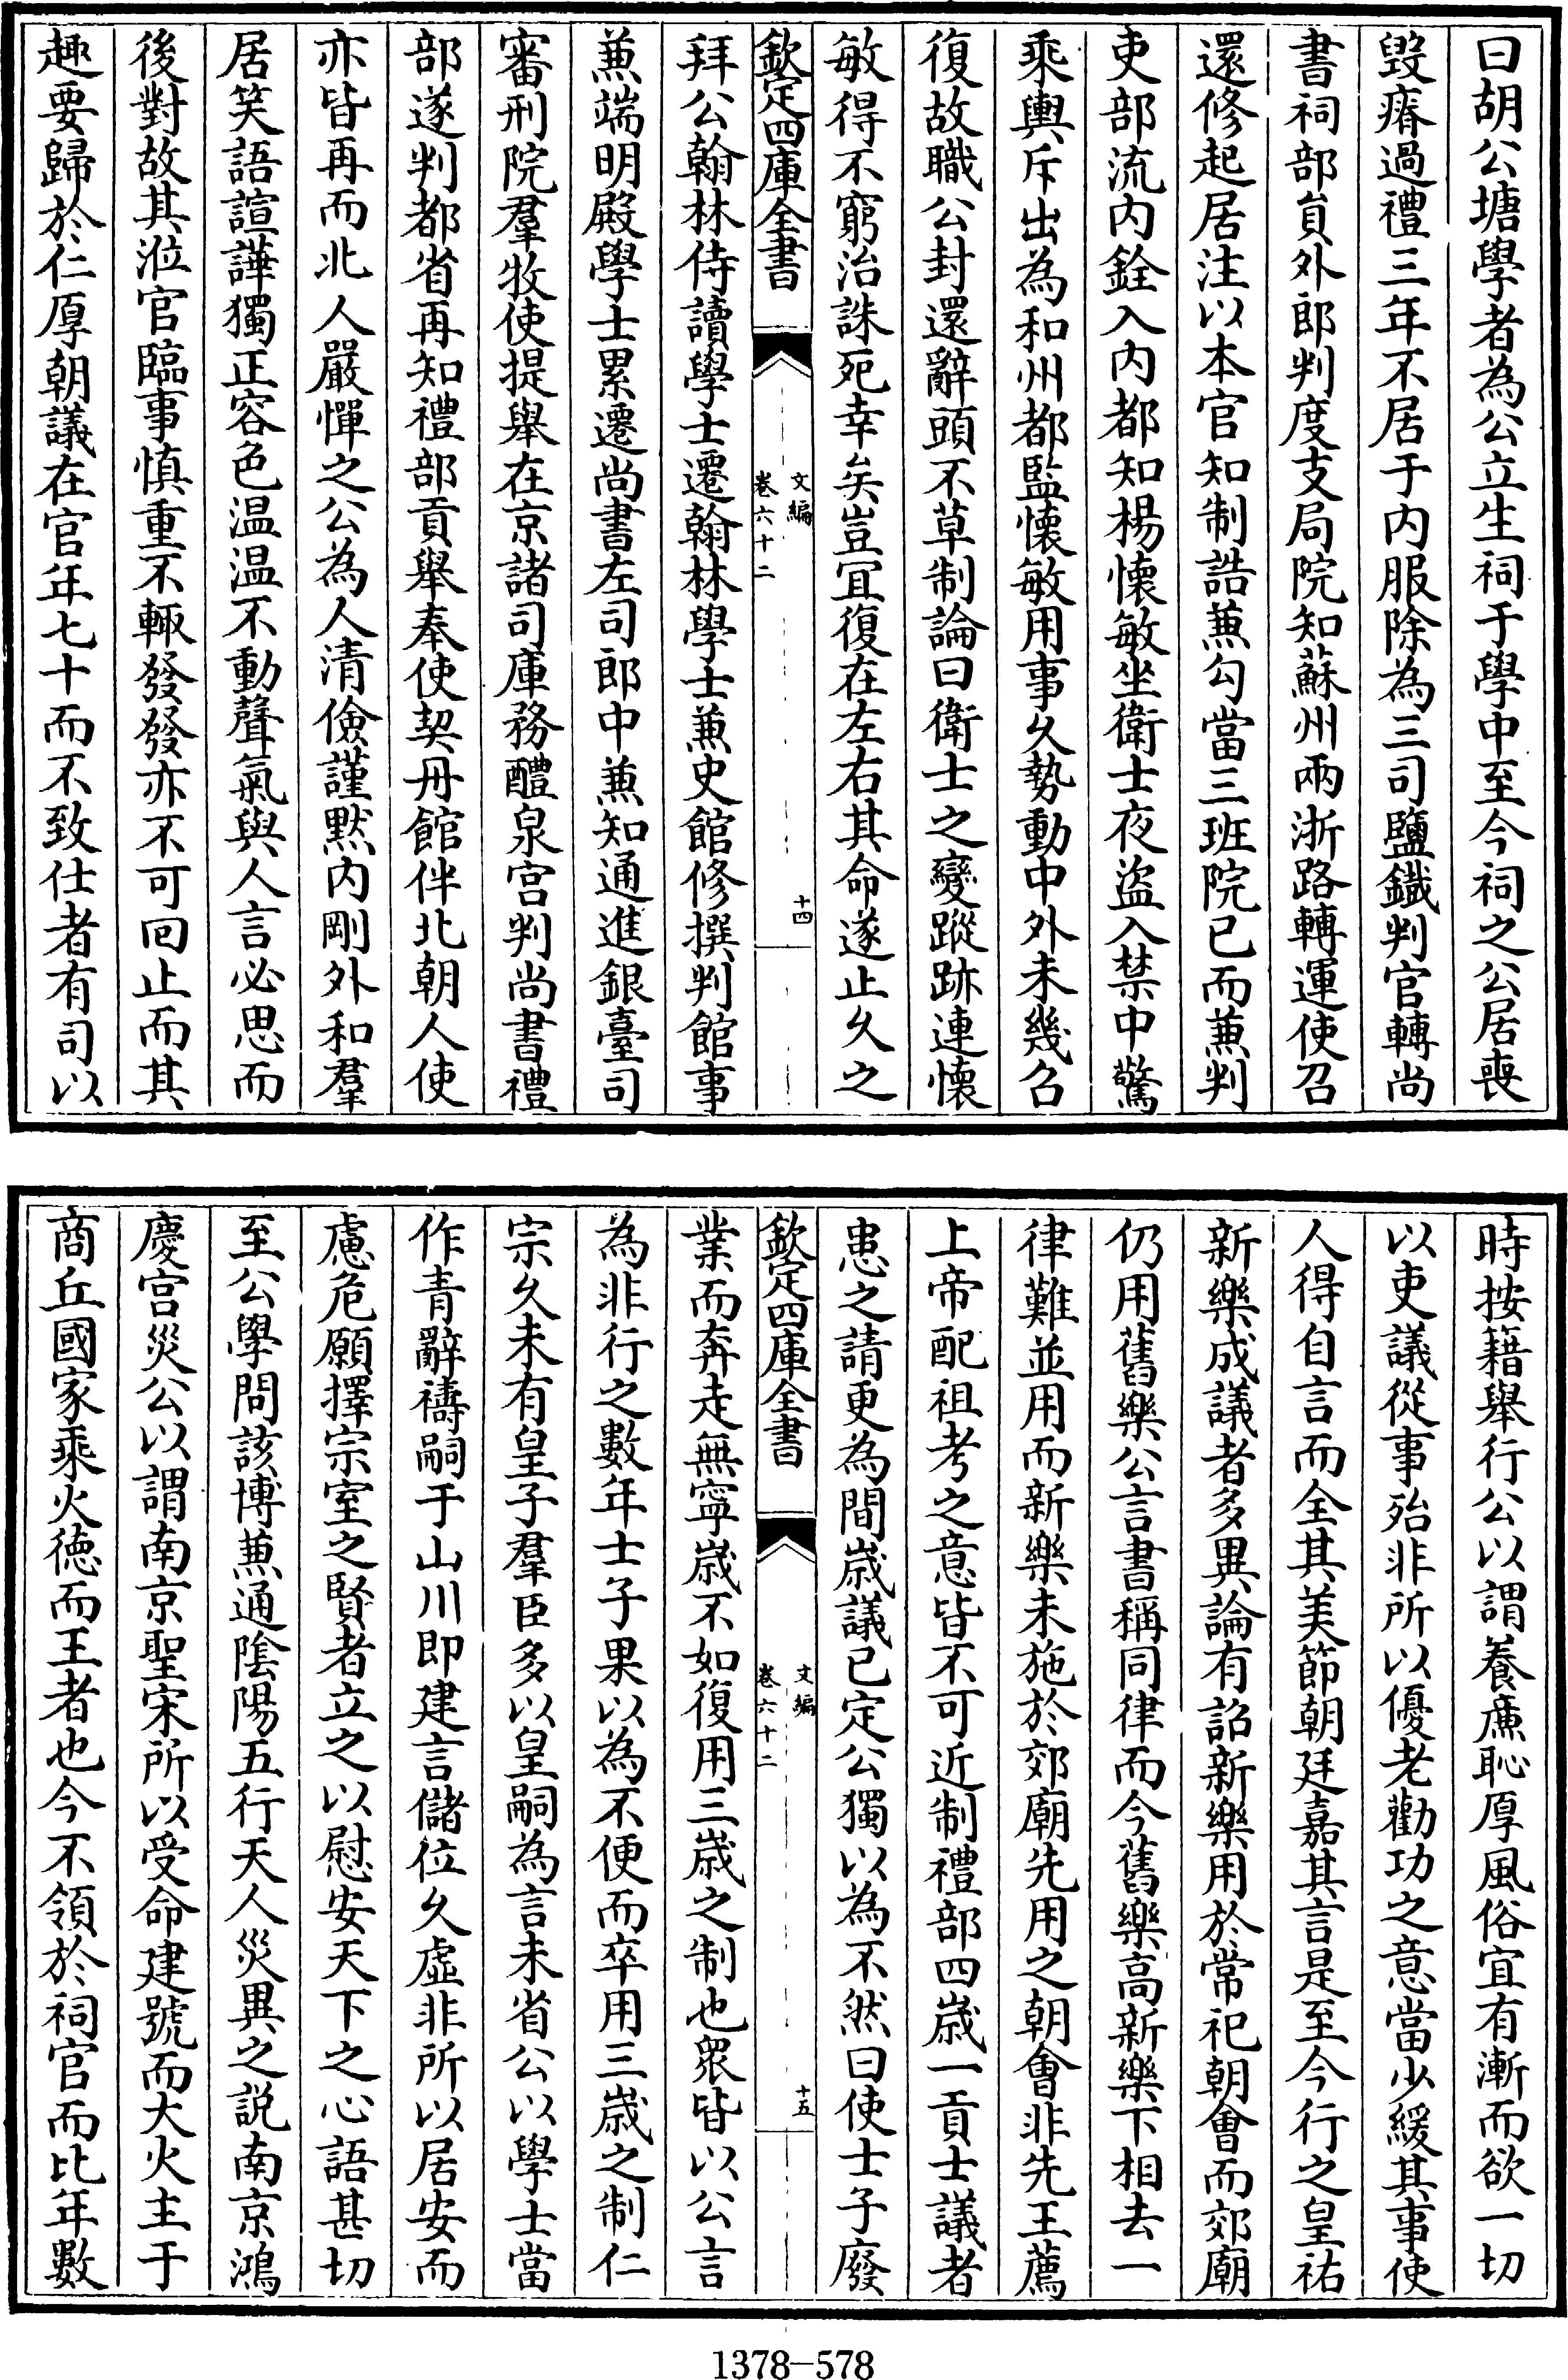 曰胡公塘學者為公立生祠于學中至今祠之公居喪
毀瘠過禮三年不居于内服除為三司鹽鐵判官轉尚
書祠部員外郎判度支局院知蘇州兩浙路轉運使召
還修起居注以本官知制誥兼勾當三班院已而兼判
吏部流内銓入内都知楊懷敏坐衛士夜盜入禁中驚
乘輿斥出為和州都監懷敏用事久勢動中外未幾召
復故職公封還辭頭不草制論曰衛士之變蹤跡連懷
敏得不窮治誅死幸矣豈宜復在左右其命遂止久之
欽定四庫全書
文編
卷六十二
十四
拜公翰林侍讀學士遷翰林學士兼史館修撰判館事
兼端明殿學士累遷尚書左司郎中兼知通進銀臺司
審刑院羣牧使提舉在京諸司庫務醴泉宫判尚書禮
部遂判都省再知禮部貢舉奉使契丹館伴北朝人使
亦皆再而北人嚴憚之公為人清儉謹默内剛外和羣
居笑語諠譁獨正容色温温不動聲氣與人言必思而
後對故其涖官臨事慎重不輒發發亦不可回止而其
趣要歸於仁厚朝議在官年七十而不致仕者有司以
時按籍舉行公以謂養廉恥厚風俗宜有漸而欲一切
以吏議從事殆非所以優老勸功之意當少緩其事使
人得自言而全其美節朝廷嘉其言是至今行之皇祐
新樂成議者多異論有詔新樂用於常祀朝會而郊廟
仍用舊樂公言書稱同律而今舊樂高新樂下相去一
律難並用而新樂未施於郊廟先用之朝會非先王薦
上帝配祖考之意皆不可近制禮部四嵗一貢士議者
患之請更為間嵗議已定公獨以為不然曰使士子廢
欽定四庫全書
文編
卷六十二
十五
業而奔走無寧嵗不如復用三嵗之制也衆皆以公言
為非行之數年士子果以為不便而卒用三嵗之制仁
宗久未有皇子羣臣多以皇嗣為言未省公以學士當
作青辭禱嗣于山川即建言儲位久虛非所以居安而
慮危願擇宗室之賢者立之以慰安天下之心語甚切
至公學問該博兼通隂陽五行天人災異之説南京鴻
慶宫災公以謂南京聖宋所以受命建號而大火主于
商丘國家乘火徳而王者也今不領於祠官而比年數
1378-578